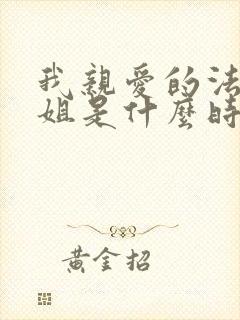 我親愛的法
姐是什麼時
黃金招